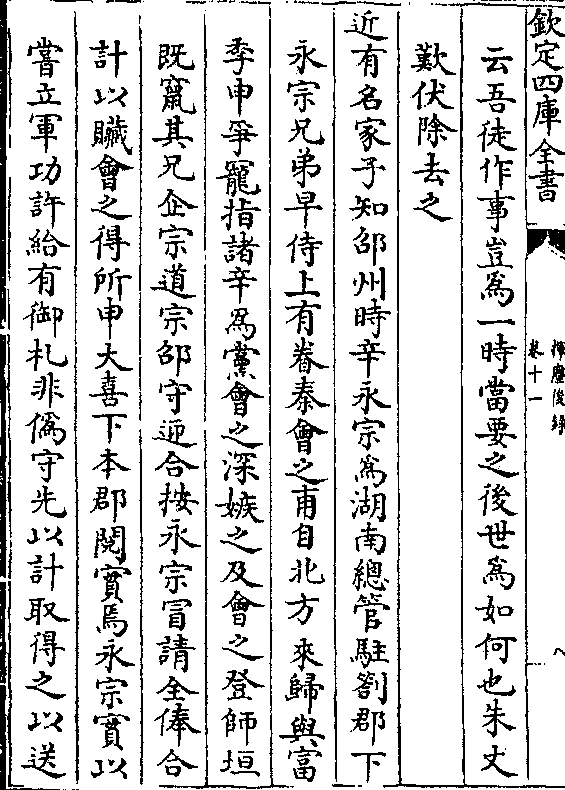 欽定四庫全書
揮麈後録
卷十一
八
云吾徒作事豈爲一時當要之後世爲如何也朱丈
歎伏除去之
近有名家子知邵州時辛永宗爲湖南總管駐劄郡下
永宗兄弟早侍上有眷秦會之甫自北方來歸與富
季申爭寵指諸辛爲黨會之深嫉之及會之登師垣
既竄其兄企宗道宗邵守迎合按永宗冒請全俸合
計以贓會之得所申大喜下本郡閲實焉永宗實以
嘗立軍功許給有御札非僞守先以計取得之以送